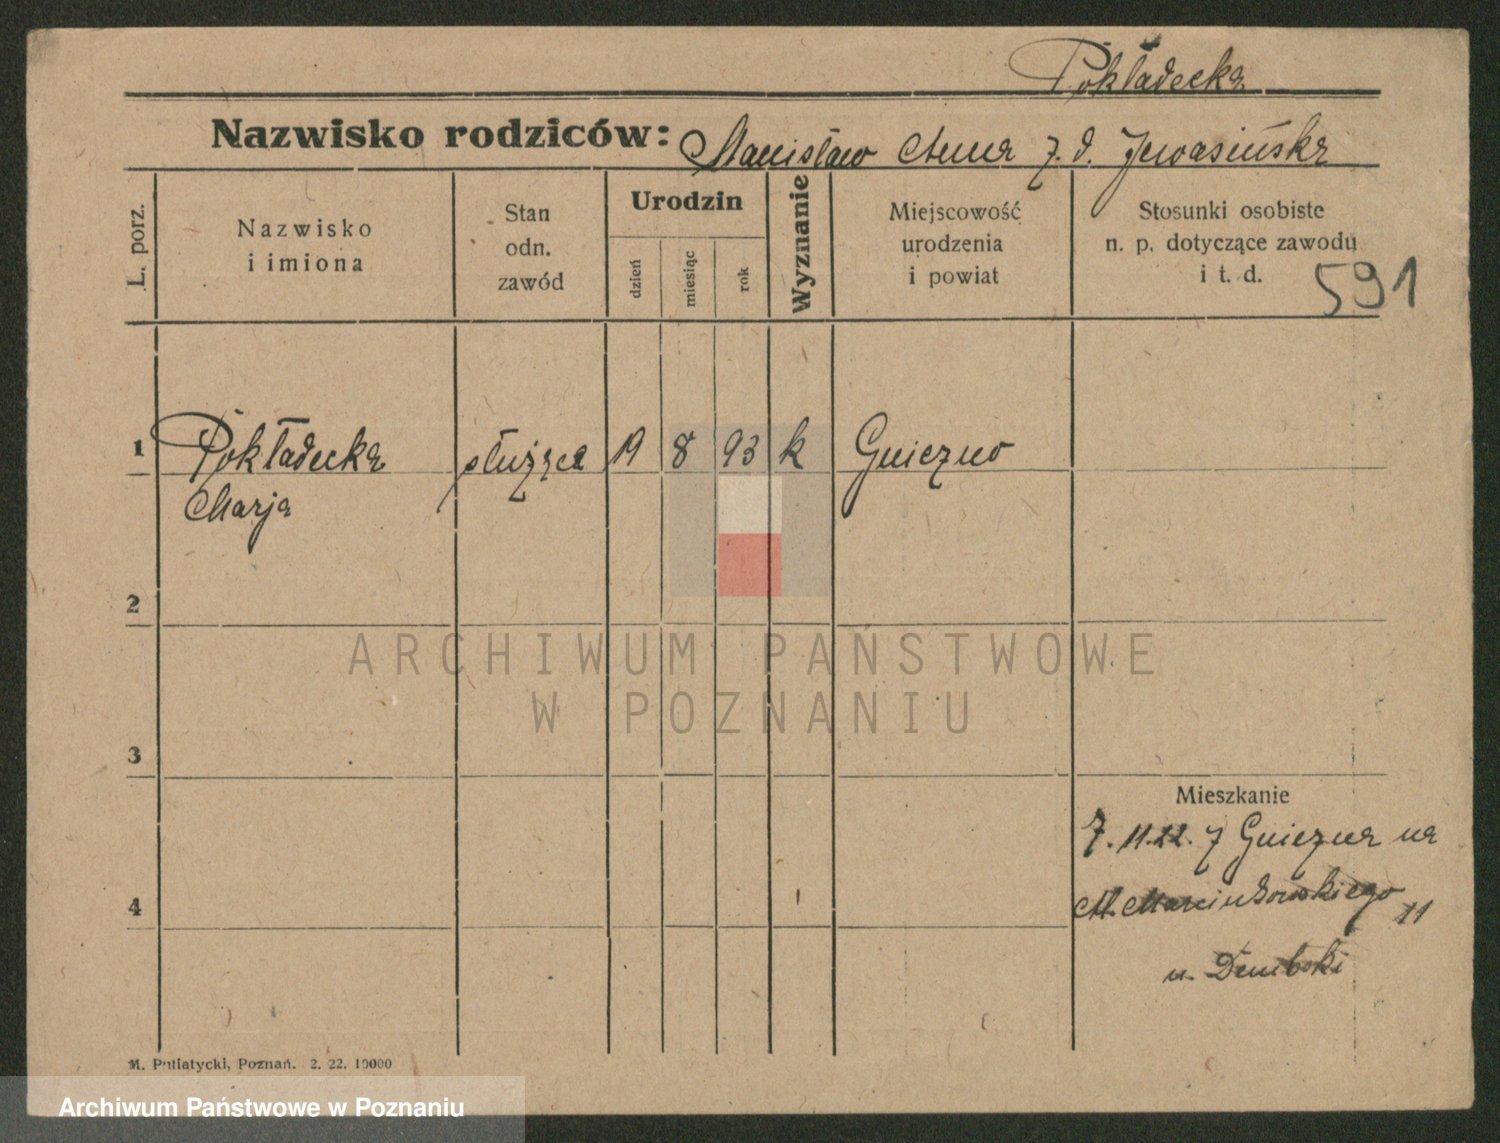 Pokładecka
Nazwisko rodziców: Stanisław Anna z. d. Jewasińska
L. porz.
Nazwisko
i imiona
Stan
odn.
zawód
Urodzin
dzień
miesiąc
rok
Wyznanie
Miejscowość
urodzenia
i powiat
Stosunki osobiste
n. p. dotyczące zawodu
i t. d.
591
1 Pokładecka służąca 19 8 93 k Gniezno
Marja
2
ARCHIWUM PAŃSTWOWE
W POZNANIU
3
Mieszkanie
7. 11. 22. z Gniezna na
4
M. Marcinkowskiego 11
u. Dembski
M. Putiatycki, Poznań. 2. 22. 10000
Archiwum Państwowe w Poznaniu